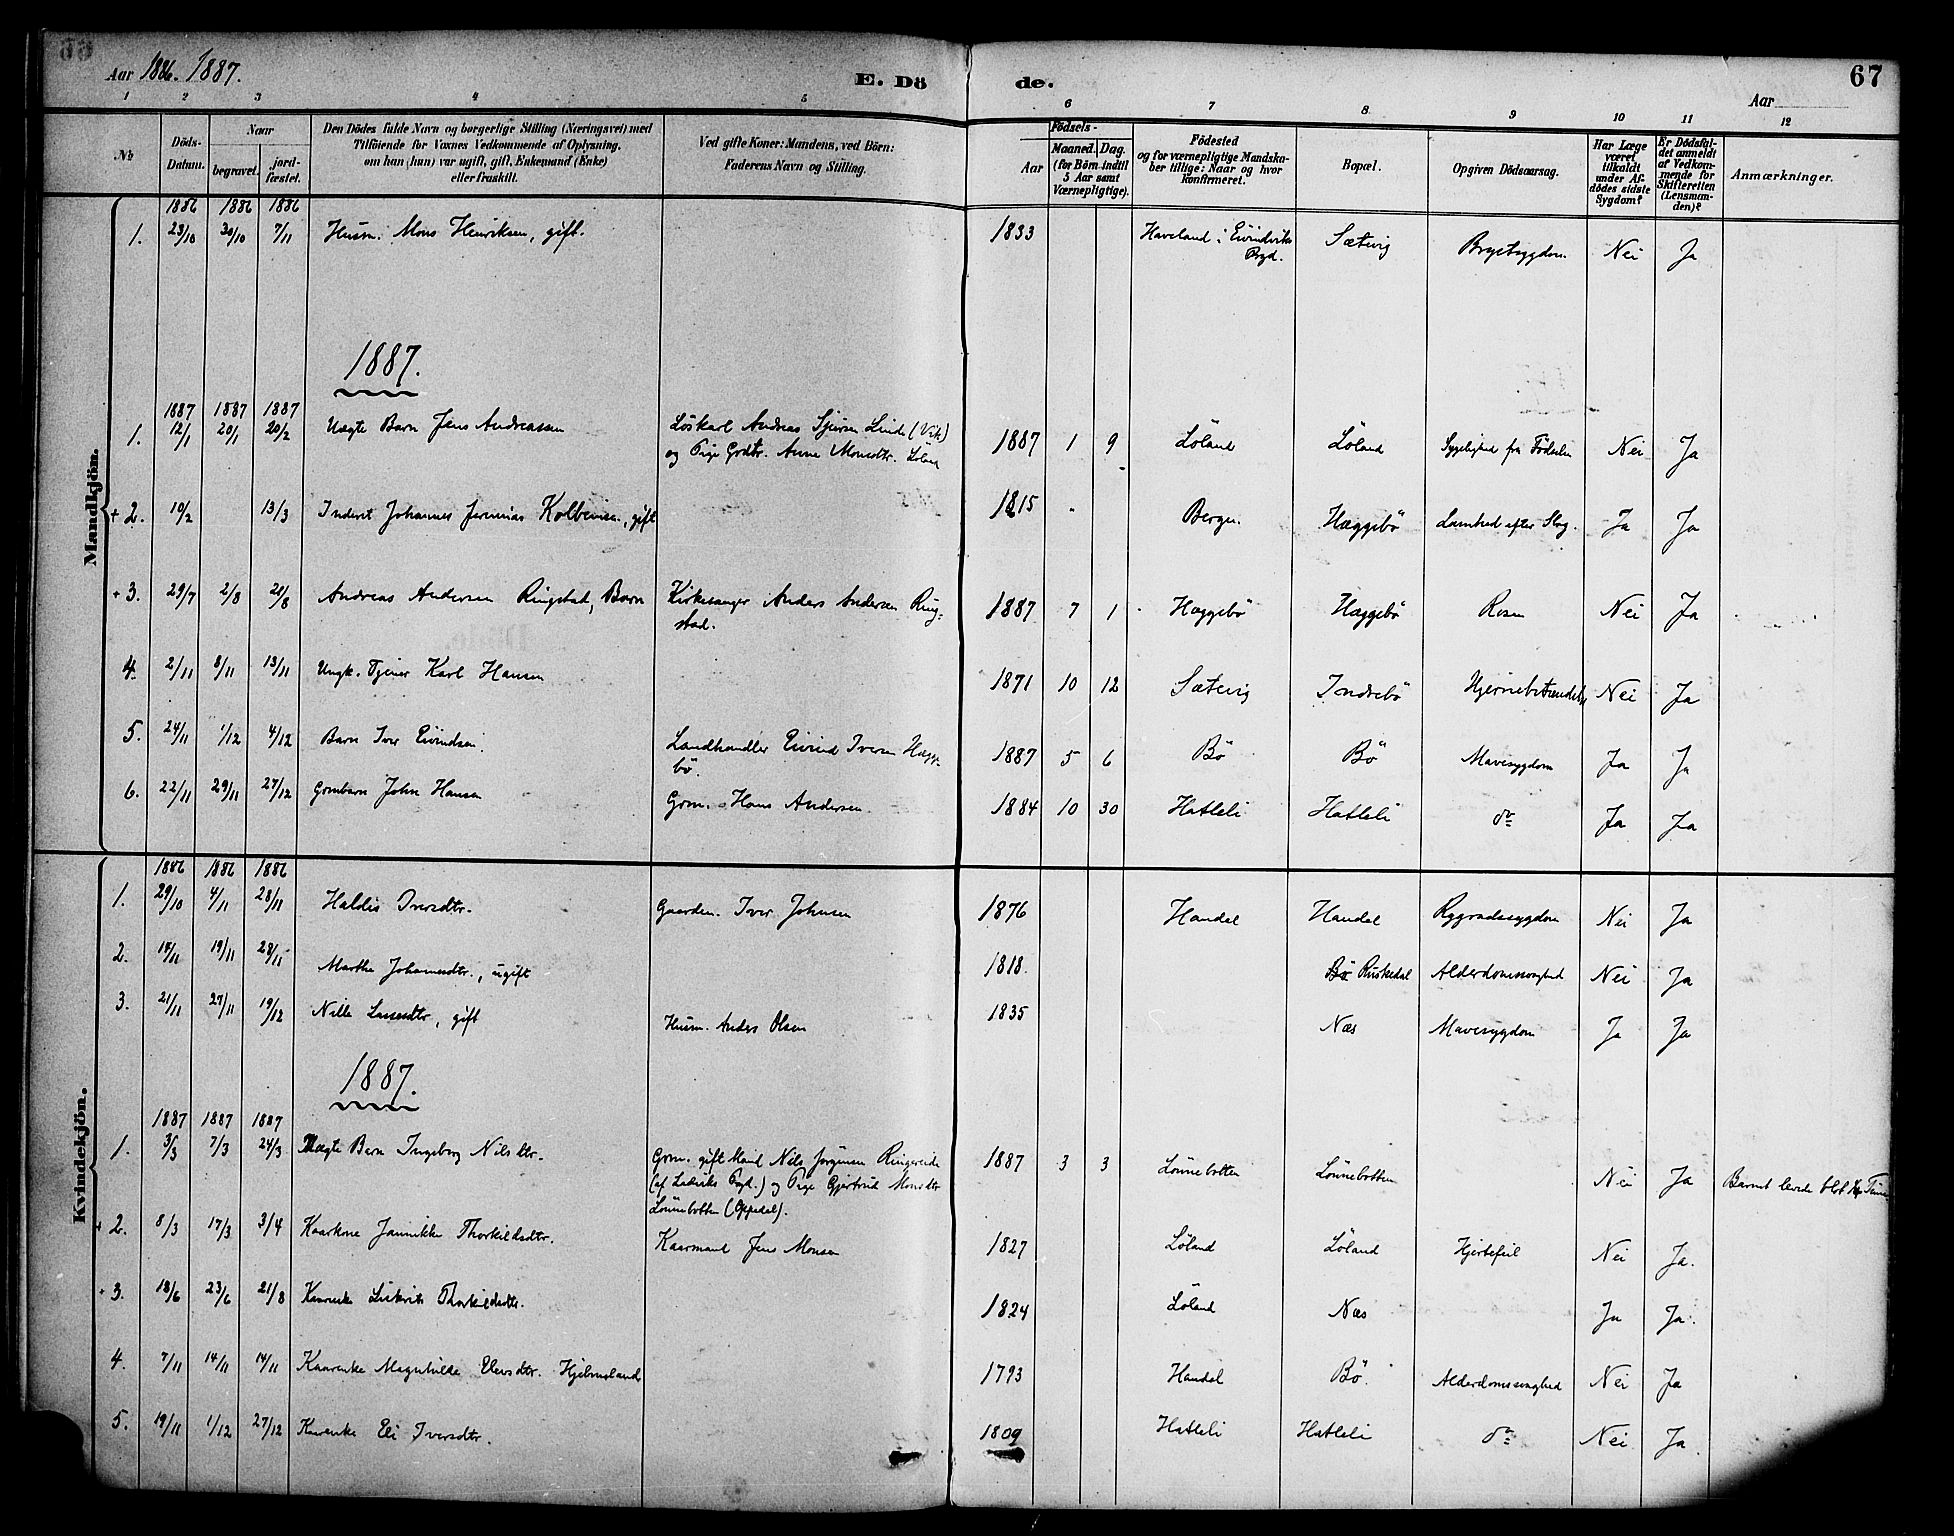 Aar 1886. 1887.
E. Dö de.
67
Aar
1 2 3 4 5 6 7 8 9 10 11 12
No
Döds-Datum.
Naar
begravet.
jord-fæstet.
Den Dödes fulde Navn og borgerlige Stilling (Næringsvei) med
Tilföiende for Voxnes Vedkommende af Oplysning,
om han (hun) var ugift, gift, Enkemand (Enke)
eller fraskilt.
Ved gifte Koner: Mandens, ved Börn:
Faderens Navn og Stilling.
Födsels-
Aar
Maaned. Dag.
(for Börn indtil
5 Aar samt
Værnepligtige).
Födested
og for værnepligtige Mandska-
ber tillige: Naar og hvor
konfirmeret.
Bopæl.
Opgiven Dödsaarsag.
Har Læge
været
tilkaldt
under Af-
dödes sidste
Sygdom?
Er Dödsfal-
det anmeldt
af Vedkom-
mende for
Skifteretten
(Lensman-
den)?
Anmærkninger.
Mandkjön.
1886 1886 1886
1. 23/10 30/10 7/11 Husm. Mons Henriksen, gift. 1833 Haveland i Eivindviks Prgd. Sætevig Brystsygdom Nei Ja
1887.
1887 1887 1887
1. 12/1 20/1 20/2 Uægte Barn Jens Andreassen Löskarl Andreas Sjursen Linde (Vik)
og Pige Grdtr. Anne Monsdtr. Löland 1887 1 9 Löland Löland Sygelighed fra Födselen Nei Ja
+ 2. 10/2 13/3 Inderst Johannes Jeremias Kolbensen, gift 1815 Bergen Hæggebö Lamhed efter Slag. Ja Ja
+ 3. 29/7 2/8 21/8 Andreas Andersen Ringstad, Barn Kirkesanger Anders Andersen Ring-
stad. 1887 7 1 Hæggebö Hæggebö Rosen Nei Ja
4. 2/11 8/11 13/11 Ungk. Tjener Karl Hansen 1871 10 12 Sætevig Indrebö Hjernebetændelse Nei Ja
5. 24/11 1/12 4/12 Barn Iver Eivindsen. Landhandler Eivind Iversen Hægge-
bö. 1887 5 6 Bö Bö Mavesygdom Ja Ja
6. 22/11 29/11 27/12 Grmbarn John Hansen Grm. Hans Andersen. 1884 10 30 Hatleli Hatleli do Ja Ja
Kvindekjön.
1886 1886 1886
1. 29/10 4/11 28/11 Haldis Iversdtr. Gaardm. Iver Johnsen 1876 Handal Handal Rygradssygdom Nei Ja
2. 19/11 28/11 Marthe Johannesdtr., ugift 1818. Bö Ruskedal Alderdomssvaghed Nei Ja
3. 21/11 27/11 19/12 Nille Lassesdtr, gift Husm. Anders Olsen 1835 Næs Mavesygdom Ja Ja
1887.
1887 1887 1887
1. 3/3 7/3 24/3 Uægte Barn Ingeborg Nilsdtr. Grm. gift Mand Nils Jörgensen Ringereide
(af Ladviks Prgd.) og Pige Gjertrud Monsdtr
Lönnebotten (Oppedal). 1887 3 3 Lönnebotten Lönnebotten Nei Ja Barnet levede blot Time
+ 2. 8/3 17/3 3/4 Kaarkone Jannikke Thorkildsdtr. Kaarmand Jens Monsen 1827 Löland Löland Hjertefeil Nei Ja.
+ 3. 18/6 23/6 21/8 Kaarenke Thorkildsdtr. 1824 Löland Næs Ja Ja.
4. 7/11 14/11 14/11 Kaarenke Magnhilde Hjelmeland 1793 Handal Bö. Alderdomssvaghed Nei Ja
5. 19/11 1/12 27/12 Kaarenke Eli Iversdtr. 1809 Hatleli Hatleli do Nei Ja